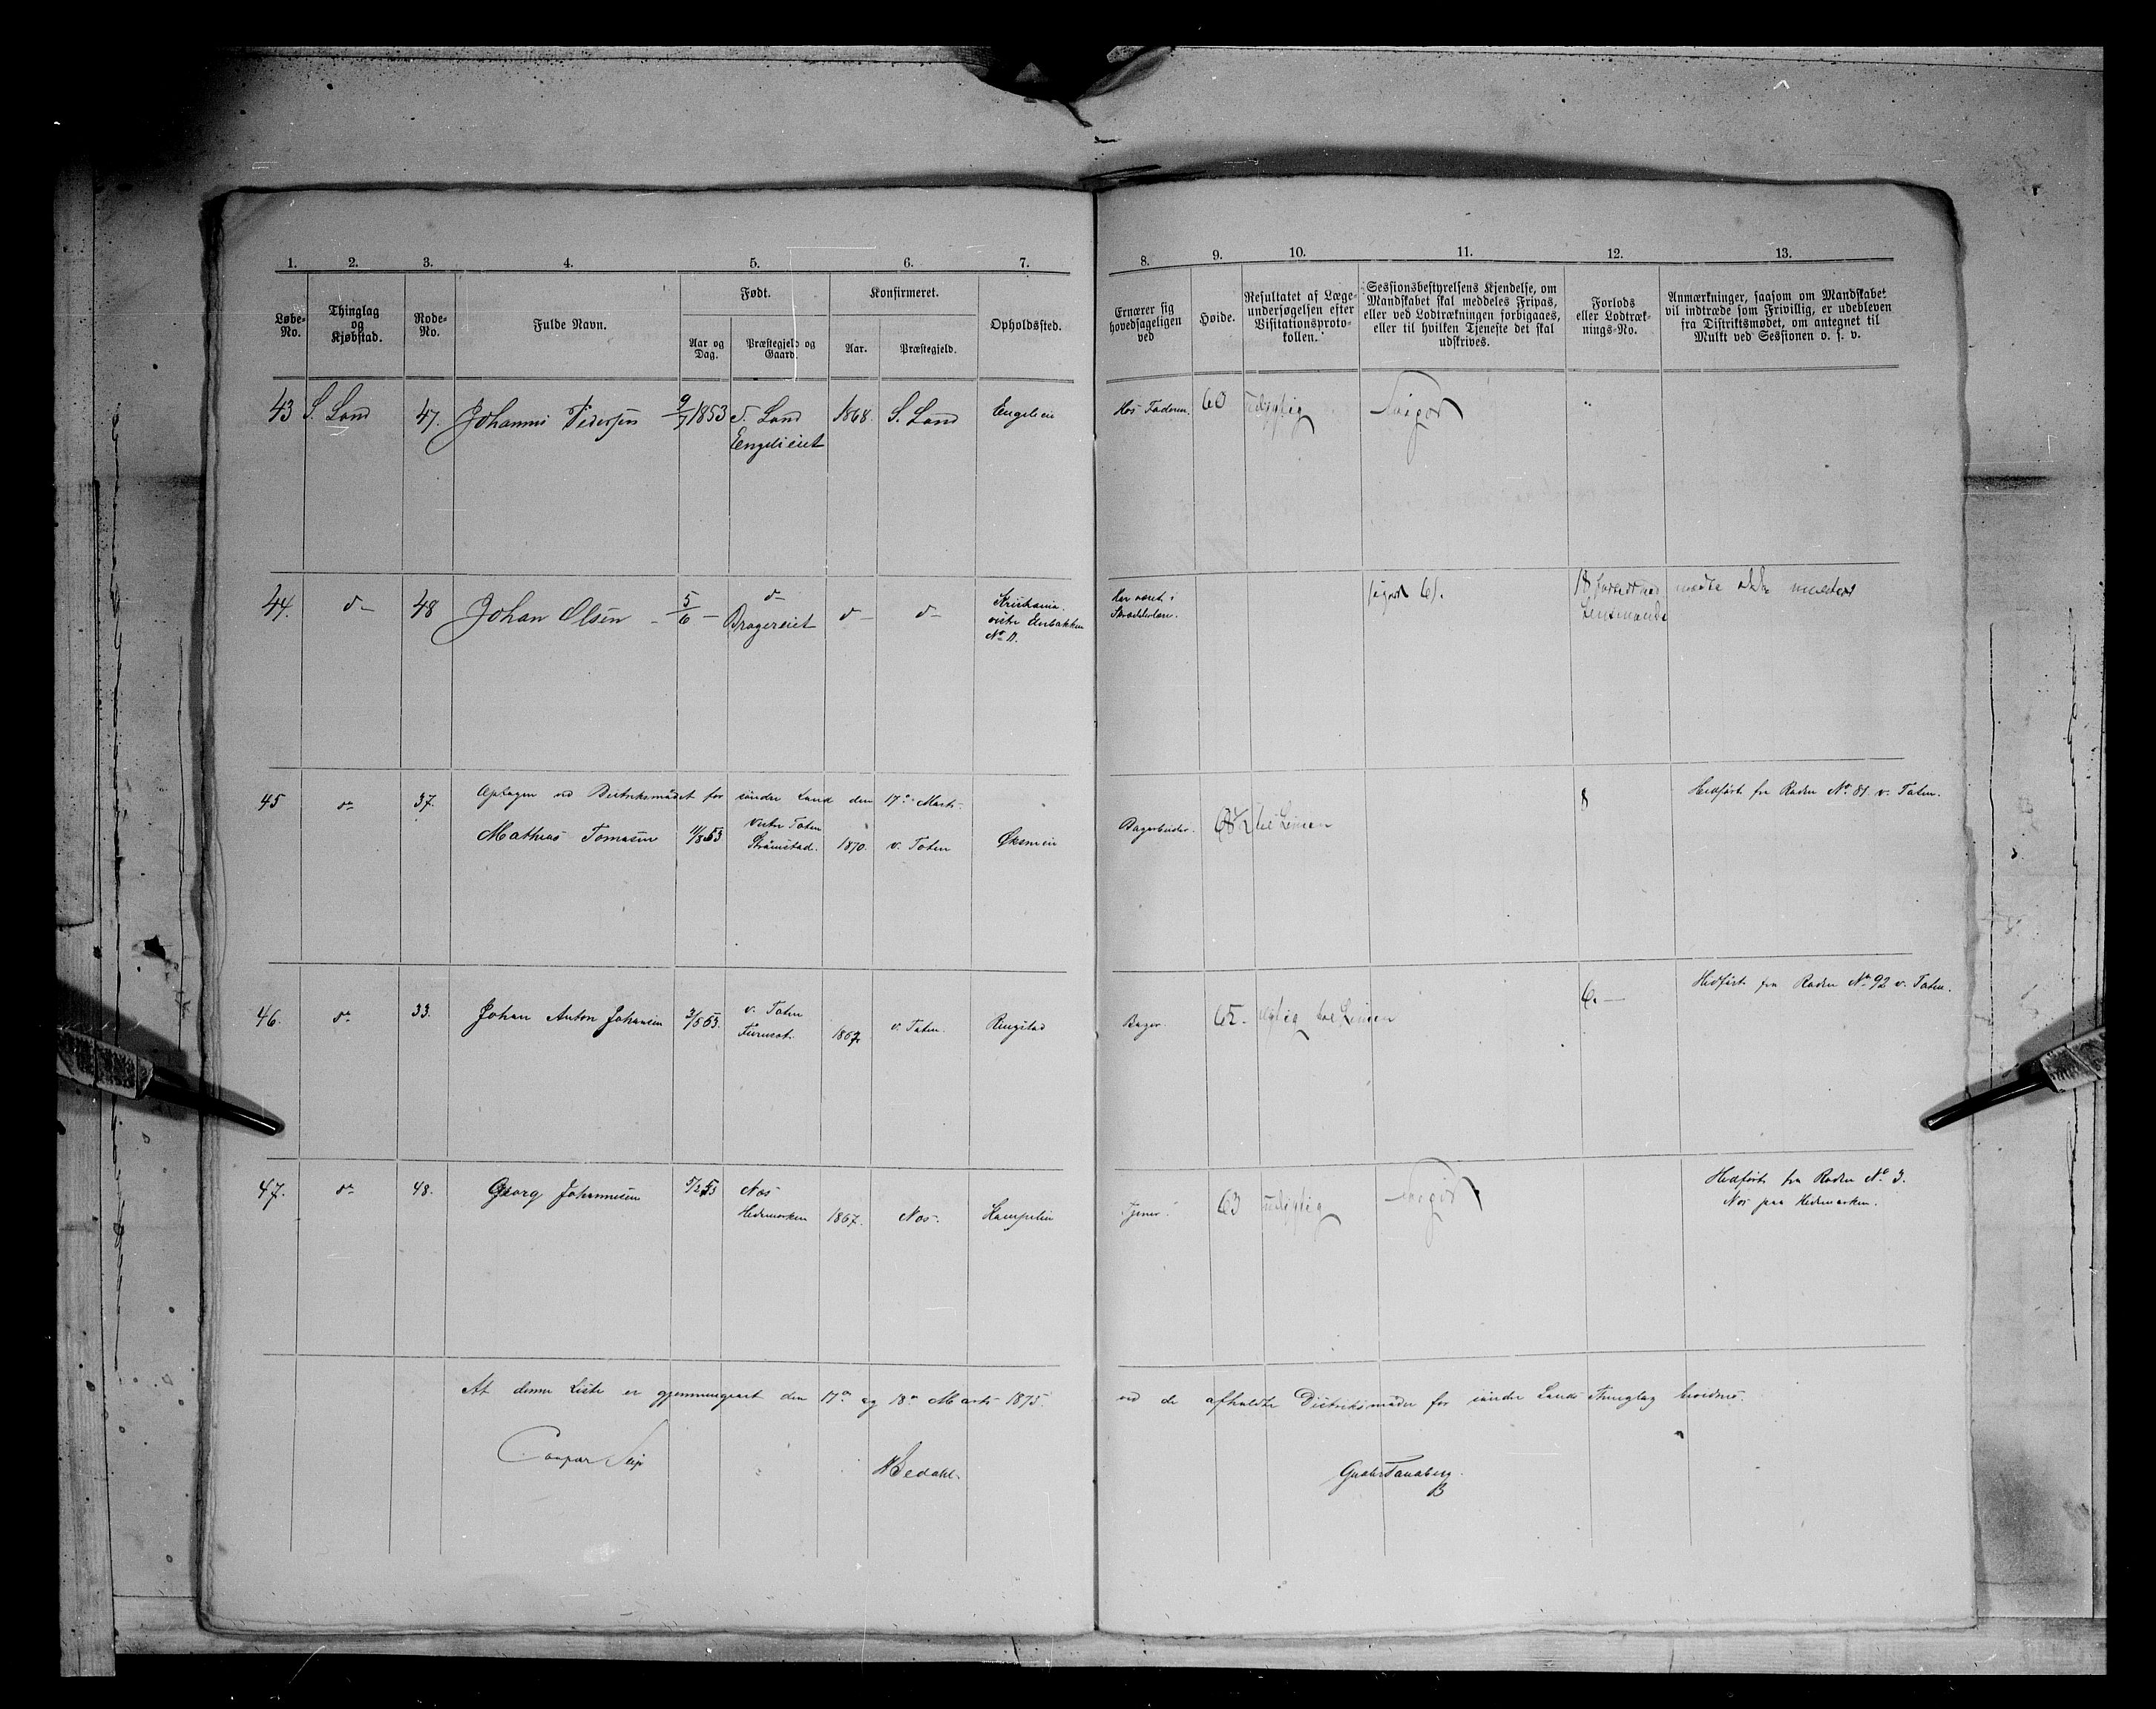 1. 2. 3. 4. 5. 6. 7. 8. 9. 10. 11. 12. 13.
Løbe-No.
Thinglag og Kjøbstad.
Rode-No.
Fulde Navn.
Født.
Aar og Dag.
Præstegjeld og Gaard.
Konfirmeret.
Aar.
Præstegjeld.
Opholdssted.
Ernærer sig hovedsageligen ved
Høide.
Resultatet af Læge-undersøgelsen efter Visitationsproto-kollen.
Sessionsbestyrelsens Kjendelse, om Mandskabet skal meddeles Fripas, eller ved Lodtrækningen forbigaaes, eller til hvilken Tjeneste det skal udskrives.
Forlods eller Lodtræk-nings-No.
Anmærkninger, saasom om Mandskabet vil indtræde som Frivillig, er udebleven fra Distriktsmødet, om antegnet til Mulkt ved Sessionen o. s. v.
43 S. Land 47. Johannes Pedersen 9/7 1853 S. Land 1868. S. Land Engelieie Hos Faderen. 60 udygtig "
Engelieiet
44. d— 48 Johan Olsen - 5/6 — d— d— d— Kristiania.
Bragereiet
No
Har været i
Skræderlære.
45 do 37. Optagen ved Distriktsmødet for søndre Land den 17de Marts. 8 Hidført fra Roden No 81 v. Toten.
Mathias Tomasen 11/8 53 Vestre Toten 1870. v. Toten
til Linien
46. do 33. Johan Anton Johansen 3/5 53. v. Toten 1867. v. Toten. Ringstad Bager. 65. dygtig til Linien 6. — Hidført fra Roden No 92 v. Toten.
47. do 48. Georg Johannesen 5/2 53 Nes 1867. Nes. Tjener. 63 udygtig Hidført fra Roden No 3.
Hedemarken
Nes paa Hedemarken.
At denne Liste er gjennemgaaet den 17de og 18de Marts 1875. ved de afholdte Distriktsmøder for søndre Lands Thinglag bevidnes.
Caspar Seip